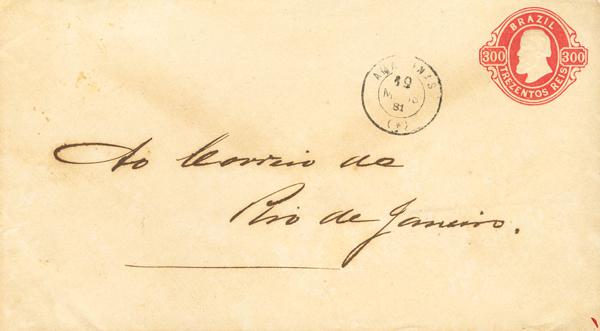 BRAZIL
300 300
TREZENTOS REIS
19
81
Ao Correio do
Rio de Janeiro.